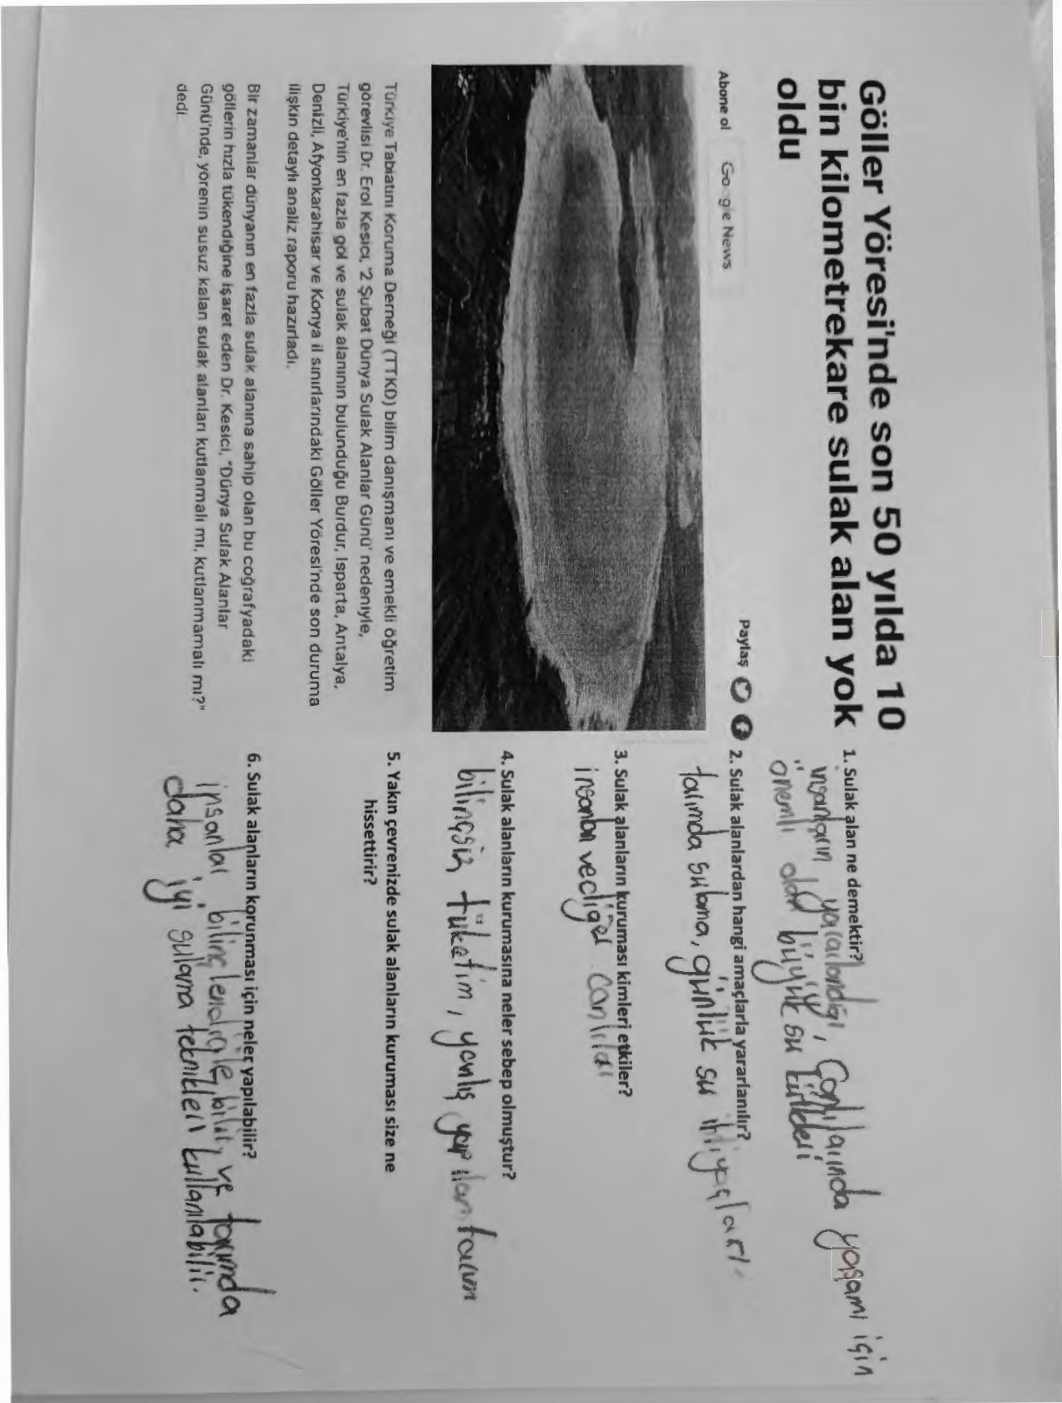 Göller Yöresi'nde son 50 yılda 10
bin kilometrekare sulak alan yok
oldu
Abone ol Google News
Paylaş
Türkiye Tabiatını Koruma Derneği (TTKD) bilim danışmanı ve emekli öğretim
görevlisi Dr. Erol Kesici, '2 Şubat Dünya Sulak Alanlar Günü' nedeniyle,
Türkiye'nin en fazla göl ve sulak alanının bulunduğu Burdur, Isparta, Antalya,
Denizli, Afyonkarahisar ve Konya il sınırlarındaki Göller Yöresi'nde son duruma
ilişkin detaylı analiz raporu hazırladı.
Bir zamanlar dünyanın en fazla sulak alanına sahip olan bu coğrafyadaki
göllerin hızla tükendiğine işaret eden Dr. Kesici, "Dünya Sulak Alanlar
Günü'nde, yörenin susuz kalan sulak alanları kutlanmalı mı, kutlanmamalı mı?"
dedi
1. Sulak alan ne demektir?
insanların yararlandığı, Canlılarında yaşamı için
önemli olan büyük su kütleleri
2. Sulak alanlardan hangi amaçlarla yararlanılır?
tarımda sulama, günlük su ihtiyaçları
3. Sulak alanların kuruması kimleri etkiler?
insanları ve diğer canlıları
4. Sulak alanların kurumasına neler sebep olmuştur?
bilinçsiz tüketim, yanlış yapılan tarım
5. Yakın çevrenizde sulak alanların kuruması size ne
hissettirir?
6. Sulak alanların korunması için neler yapılabilir?
insanlar bilinçlendirilebilir, ve tarımda
daha iyi sulama teknikleri kullanılabilir.